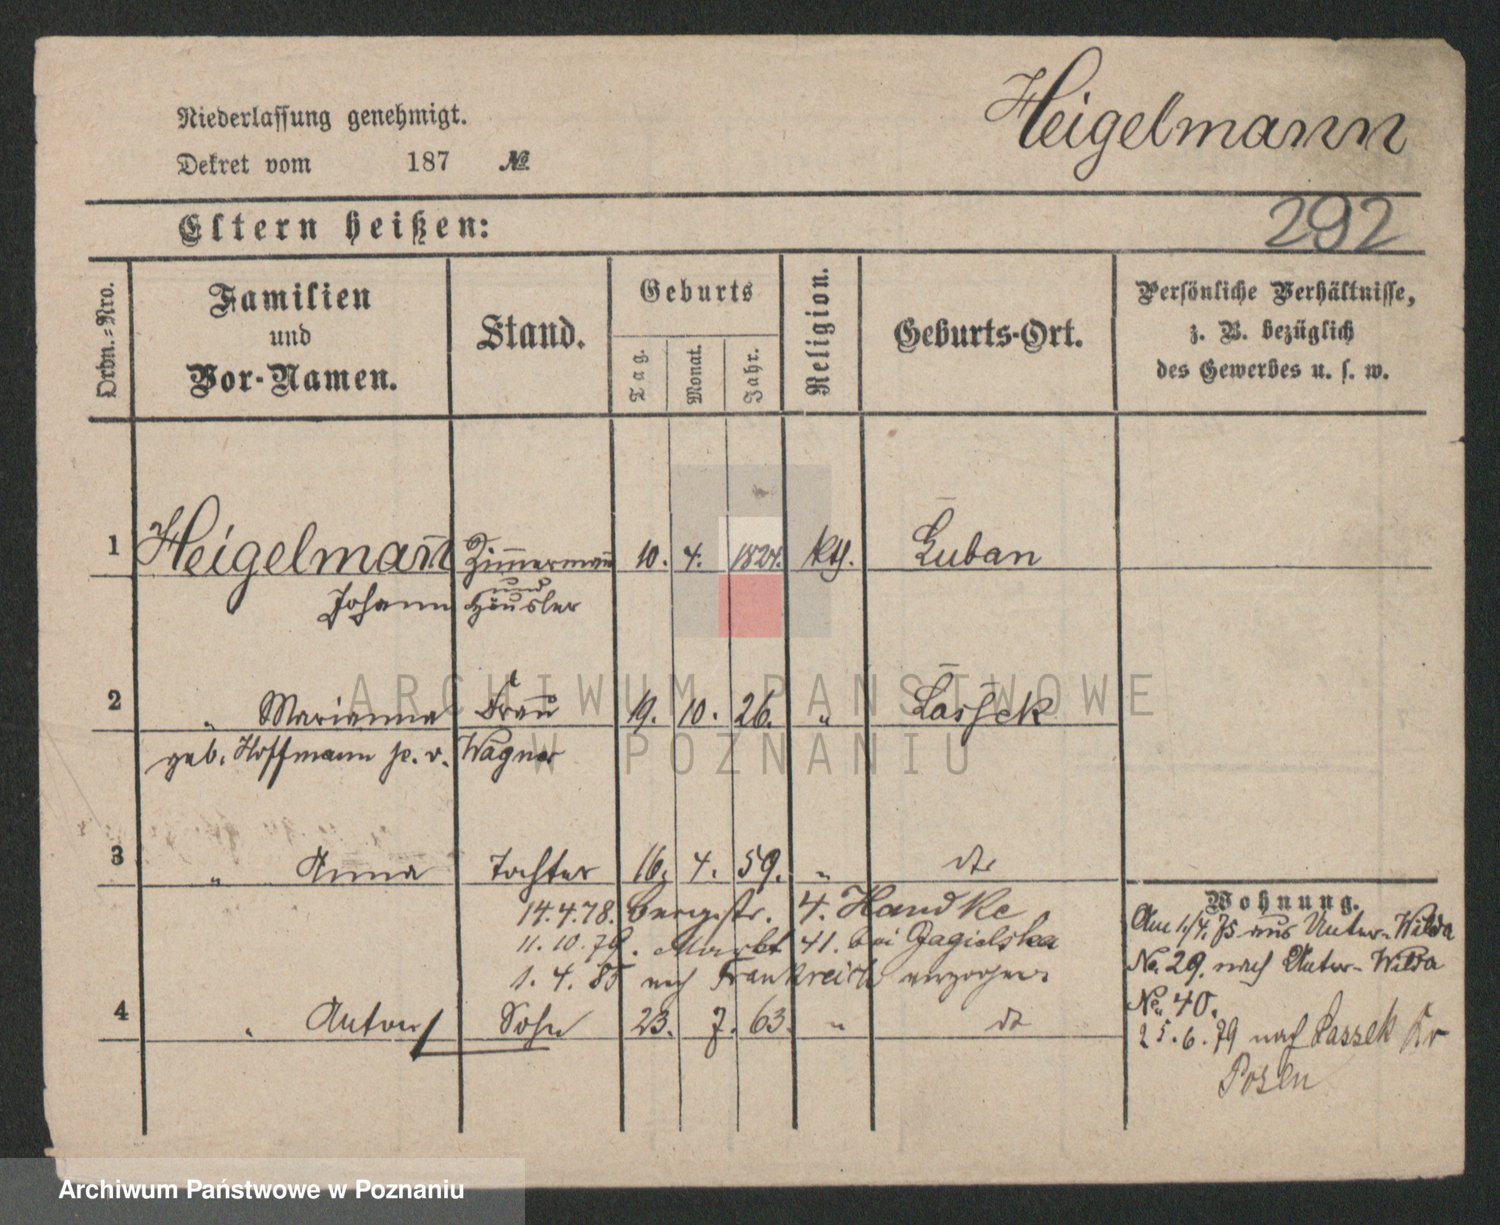 Heigelmann
Niederlassung genehmigt.
Dekret vom 187 №
292
Eltern heißen:
Ordn.-Nro.
Familien
und
Vor-Namen.
Stand.
Geburts
Tag.
Monat.
Jahr.
Religion.
Geburts-Ort.
Persönliche Verhältnisse,
z. B. bezüglich
des Gewerbes u. s. w.
1 Heigelmañ Zimmermann 10. 4. 1824. kth. Luban
Johann und Häusler
2 " Marianna Frau 19. 10. 26. " Lassek
geb. Hoffmann p. v. Wagner
3 " Anna Tochter 16. 4. 59. " dto
14.4.78. Bergstr. 4. Handke
11.10.79. Markt 41. bei Jagielska
1. 4. 85 nach Frankreich verzogen.
4 " Anton Sohn 23. 7. 63. " do
Wohnung.
Am 1/4. 75 aus Unter-Wilda
No. 29. nach Unter-Wilda
No. 40.
25.6.79 nach Lassek Kr
Posen
ARCHIWUM PAŃSTWOWE
W POZNANIU
Archiwum Państwowe w Poznaniu